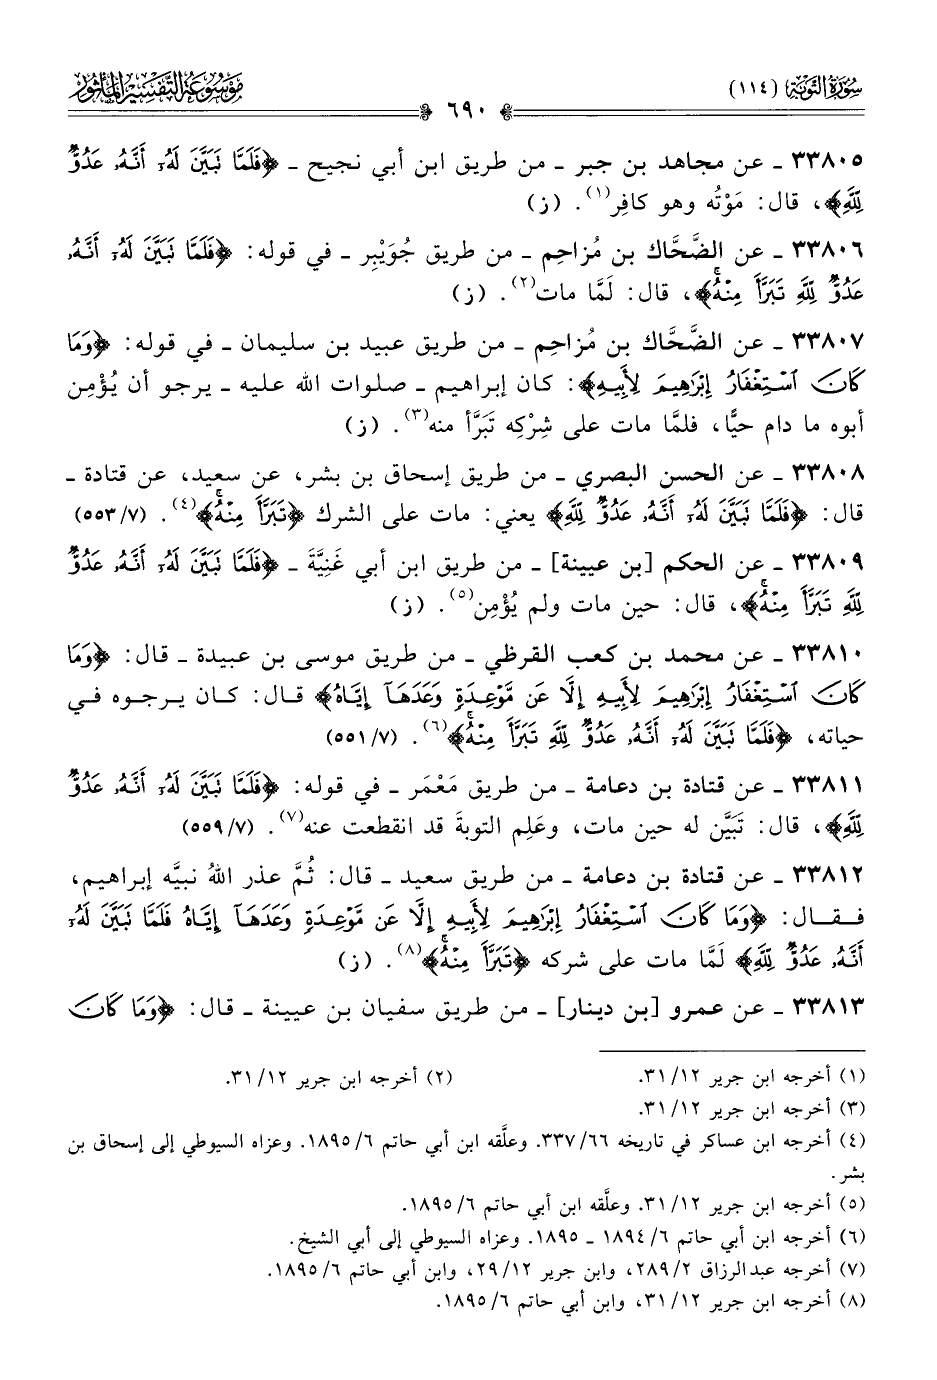 سُورَةُ التَّوْبَة (١١٤)
٦٩٠
مَوْسُوعَة التَّفْسِير المَأْثُور
٣٣٨٠٥ ـ عن مجاهد بن جبر ـ من طريق ابن أبي نجيح ـ ﴿فَلَمَّا تَبَيَّنَ لَهُۥٓ أَنَّهُۥ عَدُوٌّ
لِّلَّهِ﴾، قال: مَوْتُه وهو كافِر(١). (ز)
٣٣٨٠٦ ـ عن الضَّحَّاك بن مُزاحِم ـ من طريق جُوَيْبِر ـ في قوله: ﴿فَلَمَّا تَبَيَّنَ لَهُۥٓ أَنَّهُۥ
عَدُوٌّ لِّلَّهِ تَبَرَّأَ مِنْهُۚ﴾، قال: لَمَّا مات(٢). (ز)
٣٣٨٠٧ ـ عن الضَّحَّاك بن مُزاحِم ـ من طريق عبيد بن سليمان ـ في قوله: ﴿وَمَا
كَانَ ٱسْتِغْفَارُ إِبْرَٰهِيمَ لِأَبِيهِ﴾: كان إبراهيم ـ صلوات الله عليه ـ يرجو أن يُؤْمِن
أبوه ما دام حيًّا، فلمَّا مات على شِرْكِه تَبَرَّأ منه(٣). (ز)
٣٣٨٠٨ ـ عن الحسن البصري ـ من طريق إسحاق بن بشر، عن سعيد، عن قتادة ـ
قال: ﴿فَلَمَّا تَبَيَّنَ لَهُۥٓ أَنَّهُۥ عَدُوٌّ لِّلَّهِ﴾ يعني: مات على الشرك ﴿تَبَرَّأَ مِنْهُۚ﴾(٤). (٥٥٣/٧)
٣٣٨٠٩ ـ عن الحكم [بن عيينة] ـ من طريق ابن أبي غَنِيَّةَ ـ ﴿فَلَمَّا تَبَيَّنَ لَهُۥٓ أَنَّهُۥ عَدُوٌّ
لِّلَّهِ تَبَرَّأَ مِنْهُۚ﴾، قال: حين مات ولم يُؤْمِن(٥). (ز)
٣٣٨١٠ ـ عن محمد بن كعب القرظي ـ من طريق موسى بن عبيدة ـ قال: ﴿وَمَا
كَانَ ٱسْتِغْفَارُ إِبْرَٰهِيمَ لِأَبِيهِ إِلَّا عَن مَّوْعِدَةٍ وَعَدَهَآ إِيَّاهُ﴾ قال: كان يرجوه في
حياته، ﴿فَلَمَّا تَبَيَّنَ لَهُۥٓ أَنَّهُۥ عَدُوٌّ لِّلَّهِ تَبَرَّأَ مِنْهُۚ﴾(٦). (٥٥١/٧)
٣٣٨١١ ـ عن قتادة بن دعامة ـ من طريق مَعْمَر ـ في قوله: ﴿فَلَمَّا تَبَيَّنَ لَهُۥٓ أَنَّهُۥ عَدُوٌّ
لِّلَّهِ﴾، قال: تَبَيَّن له حين مات، وعَلِم التوبةَ قد انقطعت عنه(٧). (٥٥٩/٧)
٣٣٨١٢ ـ عن قتادة بن دعامة ـ من طريق سعيد ـ قال: ثُمَّ عذر اللهُ نبيَّه إبراهيم،
فقال: ﴿وَمَا كَانَ ٱسْتِغْفَارُ إِبْرَٰهِيمَ لِأَبِيهِ إِلَّا عَن مَّوْعِدَةٍ وَعَدَهَآ إِيَّاهُ فَلَمَّا تَبَيَّنَ لَهُۥٓ
أَنَّهُۥ عَدُوٌّ لِّلَّهِ﴾ لَمَّا مات على شركه ﴿تَبَرَّأَ مِنْهُۚ﴾(٨). (ز)
٣٣٨١٣ ـ عن عمرو [بن دينار] ـ من طريق سفيان بن عيينة ـ قال: ﴿وَمَا كَانَ
(١) أخرجه ابن جرير ٣١/١٢. (٢) أخرجه ابن جرير ٣١/١٢.
(٣) أخرجه ابن جرير ٣١/١٢.
(٤) أخرجه ابن عساكر في تاريخه ٣٣٧/٦٦. وعلَّقه ابن أبي حاتم ١٨٩٥/٦. وعزاه السيوطي إلى إسحاق بن
بشر.
(٥) أخرجه ابن جرير ٣١/١٢. وعلَّقه ابن أبي حاتم ١٨٩٥/٦.
(٦) أخرجه ابن أبي حاتم ١٨٩٤/٦ ـ ١٨٩٥. وعزاه السيوطي إلى أبي الشيخ.
(٧) أخرجه عبدالرزاق ٢٨٩/٢، وابن جرير ٢٩/١٢، وابن أبي حاتم ١٨٩٥/٦.
(٨) أخرجه ابن جرير ٣١/١٢، وابن أبي حاتم ١٨٩٥/٦.